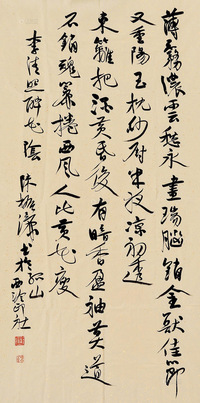 薄霧濃雲愁永晝瑞腦銷金獸佳節
又重陽玉枕紗厨半夜涼初透
東籬把酒黃昏後有暗香盈袖莫道
不銷魂簾捲西風人比黃花瘦
李清照醉花陰 陳振濂書於孤山
西泠印社